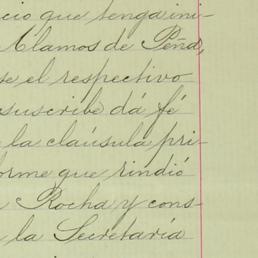 cio que tenga ini-
Alamos de Peña,
se el respectivo
suscribe dá fé
la claúsula pri-
orme que rindió
Rocha y cons-
la Secretaría